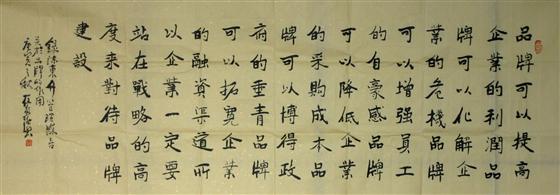 品牌可以提高
企業的利潤品
牌可以化解企
業的危機品牌
可以增强員工
的自豪感品牌
可以降低企業
的采購成本品
牌可以博得政
府的垂青品牌
可以拓寬企業
的融資渠道所
以企業一定要
站在戰略的高
度來對待品牌
建設
錄陳東升管理
品牌的作用
庚寅之秋